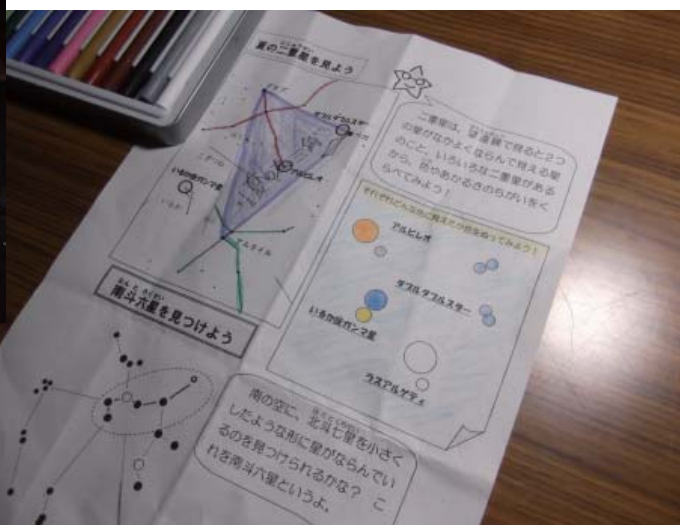 夏の二重星を見よう
デネブ
ダブルダブルスター
ベガ
アルビレオ
いるか座ガンマ星
いるか
アルタイル
二重星は、望遠鏡で見ると2つ
の星がなかよくならんで見える星
のこと、いろいろな二重星がある
から、色やあかるさのちがいをく
らべてみよう！
それぞれどんな色に見えたか色をぬってみよう！
アルビレオ
ダブルダブルスター
いるか座ガンマ星
ラスアルゲティ
なんとろくせい
南斗六星を見つけよう
南の空に、北斗七星を小さく
したような形に星がならんでい
るのを見つけられるかな？　こ
れを南斗六星というよ。